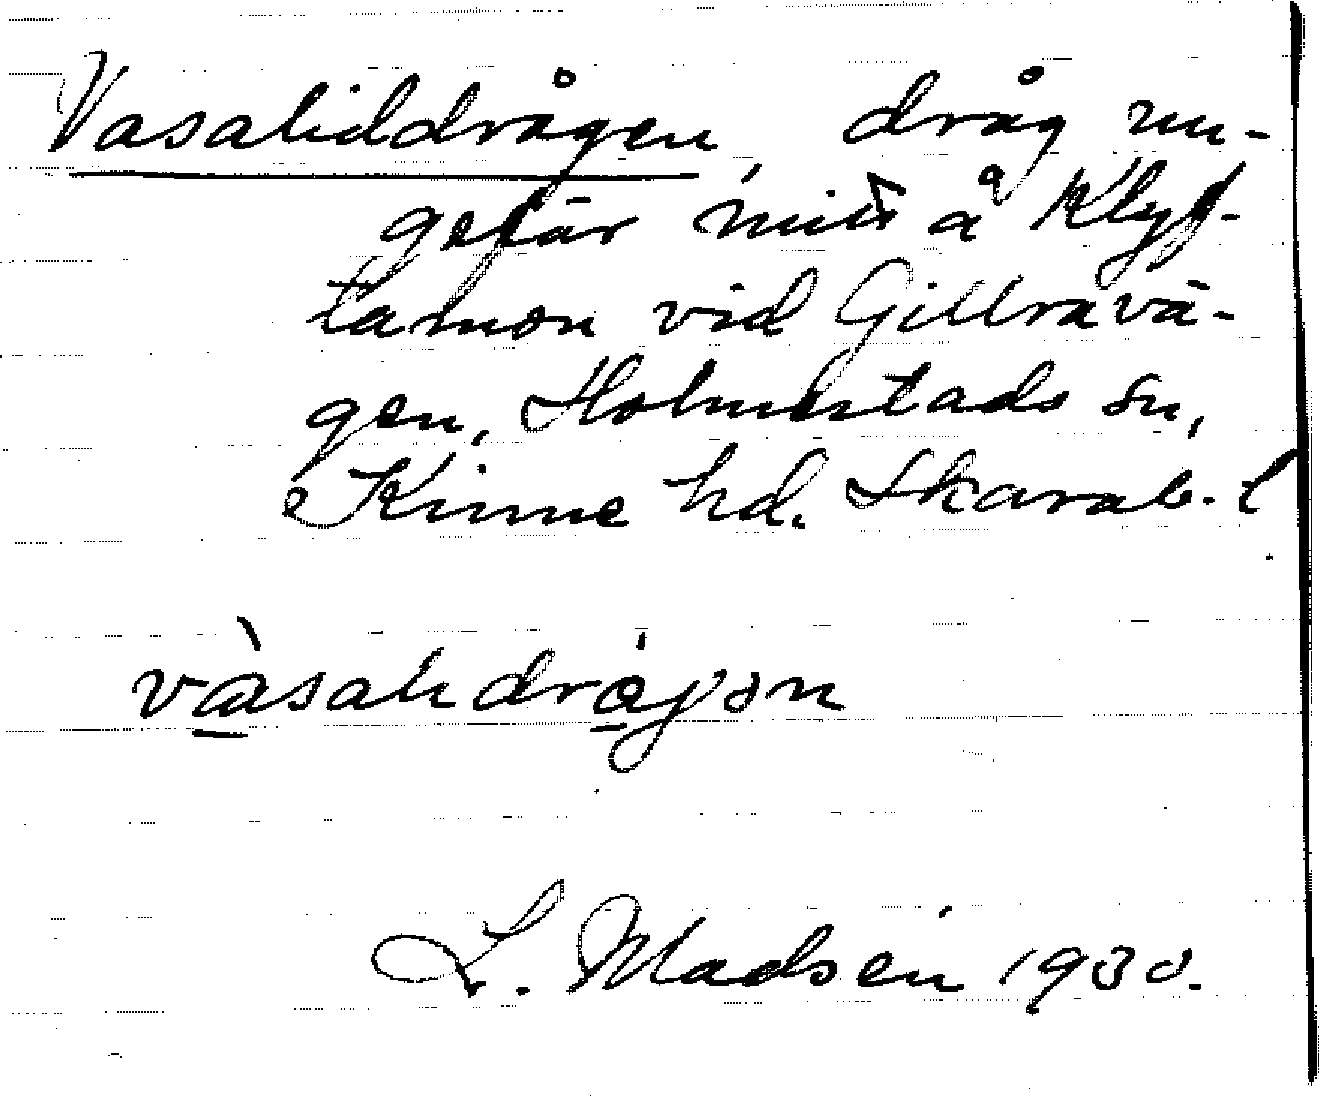 Vasaliddrågen, dråg un-
gefär mitt å Klyf-
tamon vid Gillravä-
gen, Holmestads sn,
Kinne hd. Skarab. l
vàsalidrågən
L. Madsén 1930.